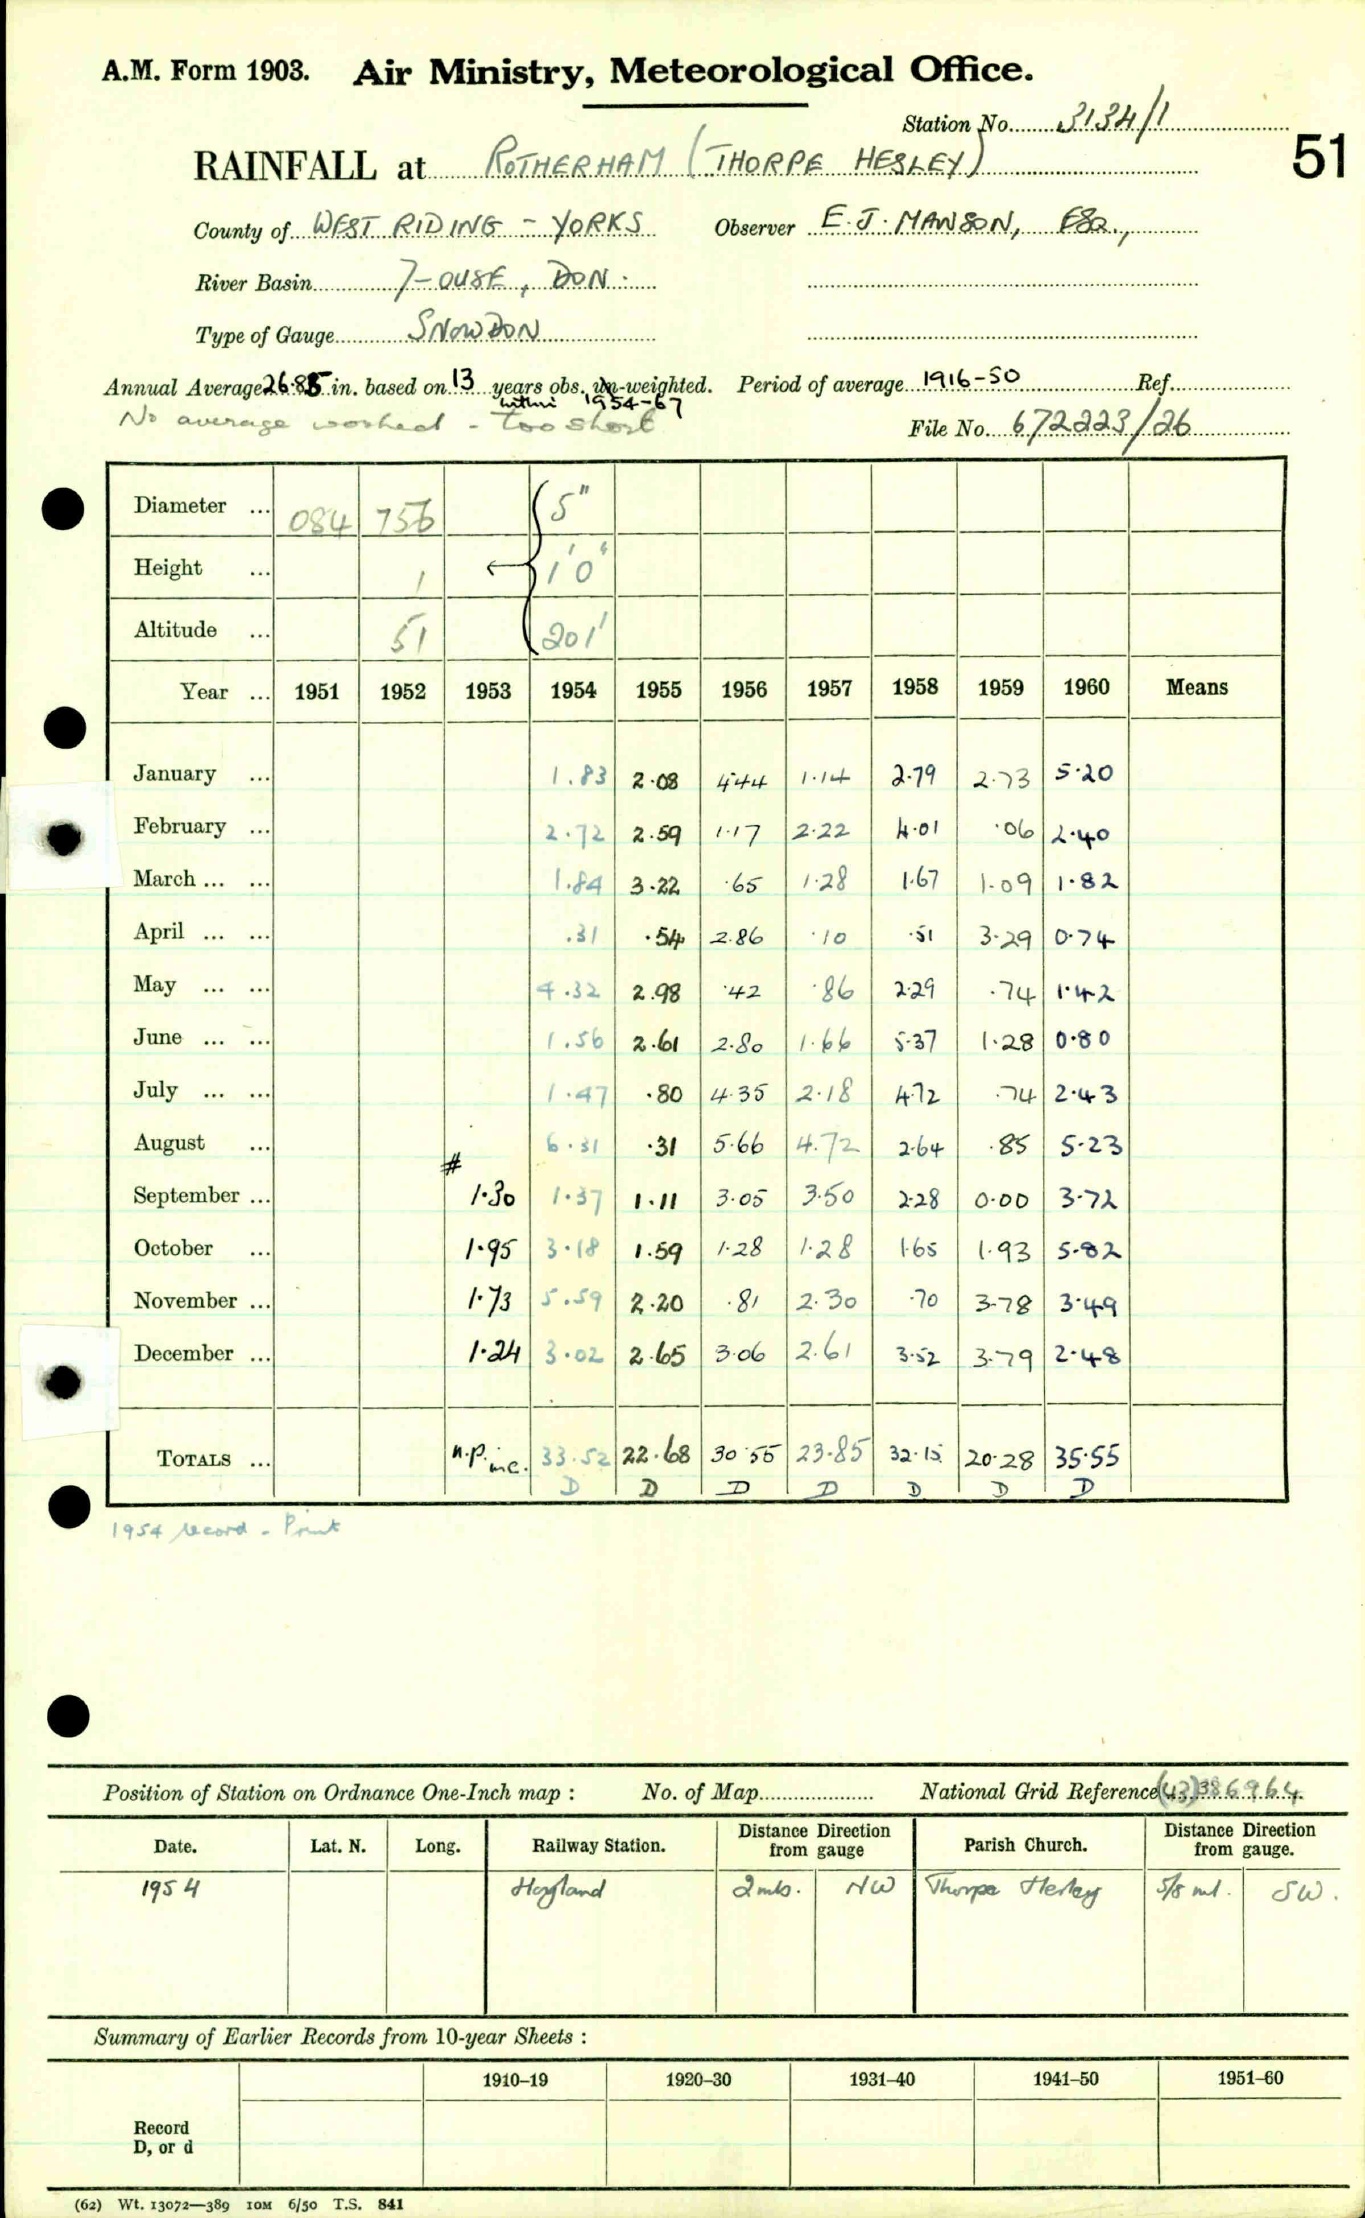 A.M. Form 1903. Air Ministry, Meteorological Office.
Station No. 3134/1
51
RAINFALL at ROTHERHAM (THORPE HESLEY)
County of WEST RIDING - YORKS Observer E. J. MANSON, ESQ.,
River Basin 7-OUSE, DON.
Type of Gauge SNOWDON
Annual Average 26.85 in. based on 13 years obs. un-weighted. Period of average 1916-50 Ref.
within 1954-67
No average worked - too short
File No. 672223/26
Diameter ... 084 756 5"
Height ... 1 1'0"
Altitude ... 51 201'
Year ... 1951 1952 1953 1954 1955 1956 1957 1958 1959 1960 Means
January ... 1.83 2.08 4.44 1.14 2.79 2.73 5.20
February ... 2.72 2.59 1.17 2.22 4.01 .06 2.40
March ... ... 1.84 3.22 .65 1.28 1.67 1.09 1.82
April ... ... .31 .54 2.86 .10 .51 3.29 0.74
May ... ... 4.32 2.98 .42 .86 2.29 .74 1.42
June ... ... 1.56 2.61 2.80 1.66 5.37 1.28 0.80
July ... ... 1.47 .80 4.35 2.18 4.72 .74 2.43
August ... 6.31 .31 5.66 4.72 2.64 .85 5.23
#
September ... 1.30 1.37 1.11 3.05 3.50 2.28 0.00 3.72
October ... 1.95 3.18 1.59 1.28 1.28 1.65 1.93 5.82
November ... 1.73 5.59 2.20 .81 2.30 .70 3.78 3.49
December ... 1.24 3.02 2.65 3.06 2.61 3.52 3.79 2.48
TOTALS ... n.p. inc. 33.52 22.68 30.55 23.85 32.15 20.28 35.55
D D D D D D D
1954 record - Print
Position of Station on Ordnance One-Inch map : No. of Map National Grid Reference (43) 386964
Date. Lat. N. Long. Railway Station. Distance Direction from gauge Parish Church. Distance Direction from gauge.
1954 Hoyland 2 mls. NW Thorpe Hesley 5/8 ml. SW.
Summary of Earlier Records from 10-year Sheets :
1910–19 1920–30 1931–40 1941–50 1951–60
Record
D, or d
(62) Wt. 13072—389 10M 6/50 T.S. 841